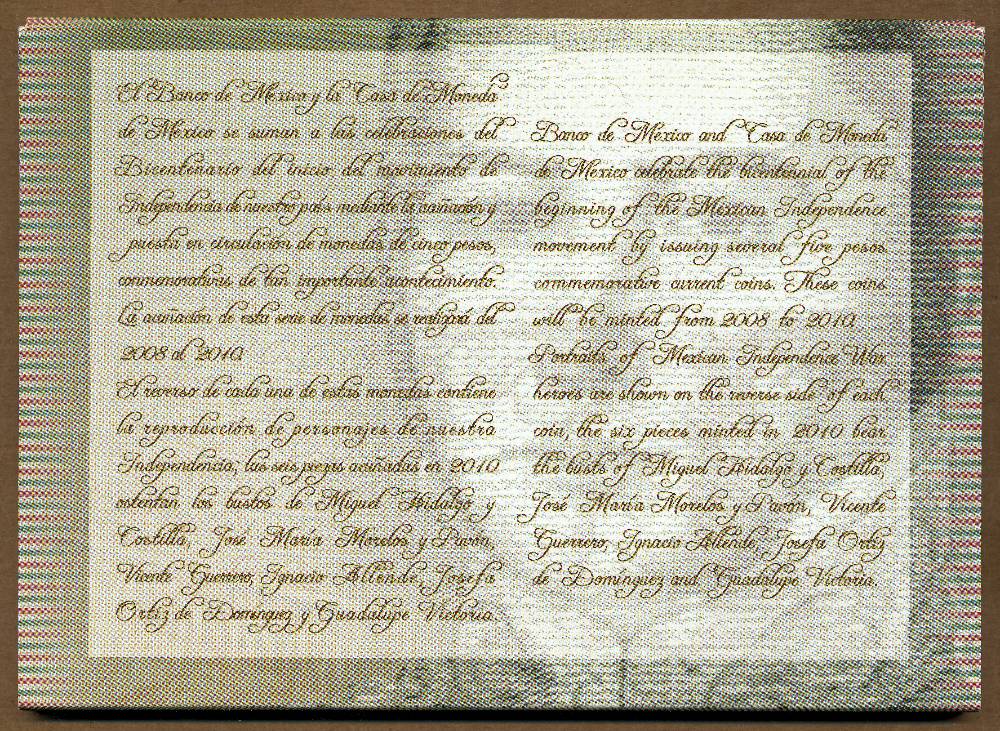 El Banco de México y la Casa de Moneda
de México se suman a las celebraciones del
Bicentenario del inicio del movimiento de
Independencia de nuestro país mediante la acuñación y
puesta en circulación de monedas de cinco pesos,
conmemorativas de tan importante acontecimiento.
La acuñación de esta serie de monedas se realizará del
2008 al 2010.
El reverso de cada una de estas monedas contiene
la reproducción de personajes de nuestra
Independencia, las seis piezas acuñadas en 2010
ostentan los bustos de Miguel Hidalgo y
Costilla, José María Morelos y Pavón,
Vicente Guerrero, Ignacio Allende, Josefa
Ortiz de Domínguez y Guadalupe Victoria.
Banco de México and Casa de Moneda
de Mexico celebrate the bicentennial of the
beginning of the Mexican Independence
movement by issuing several five pesos
commemorative current coins. These coins
will be minted from 2008 to 2010.
Portraits of Mexican Independence War
heroes are shown on the reverse side of each
coin, the six pieces minted in 2010 bear
the busts of Miguel Hidalgo y Costilla,
José María Morelos y Pavón, Vicente
Guerrero, Ignacio Allende, Josefa Ortiz
de Domínguez and Guadalupe Victoria.